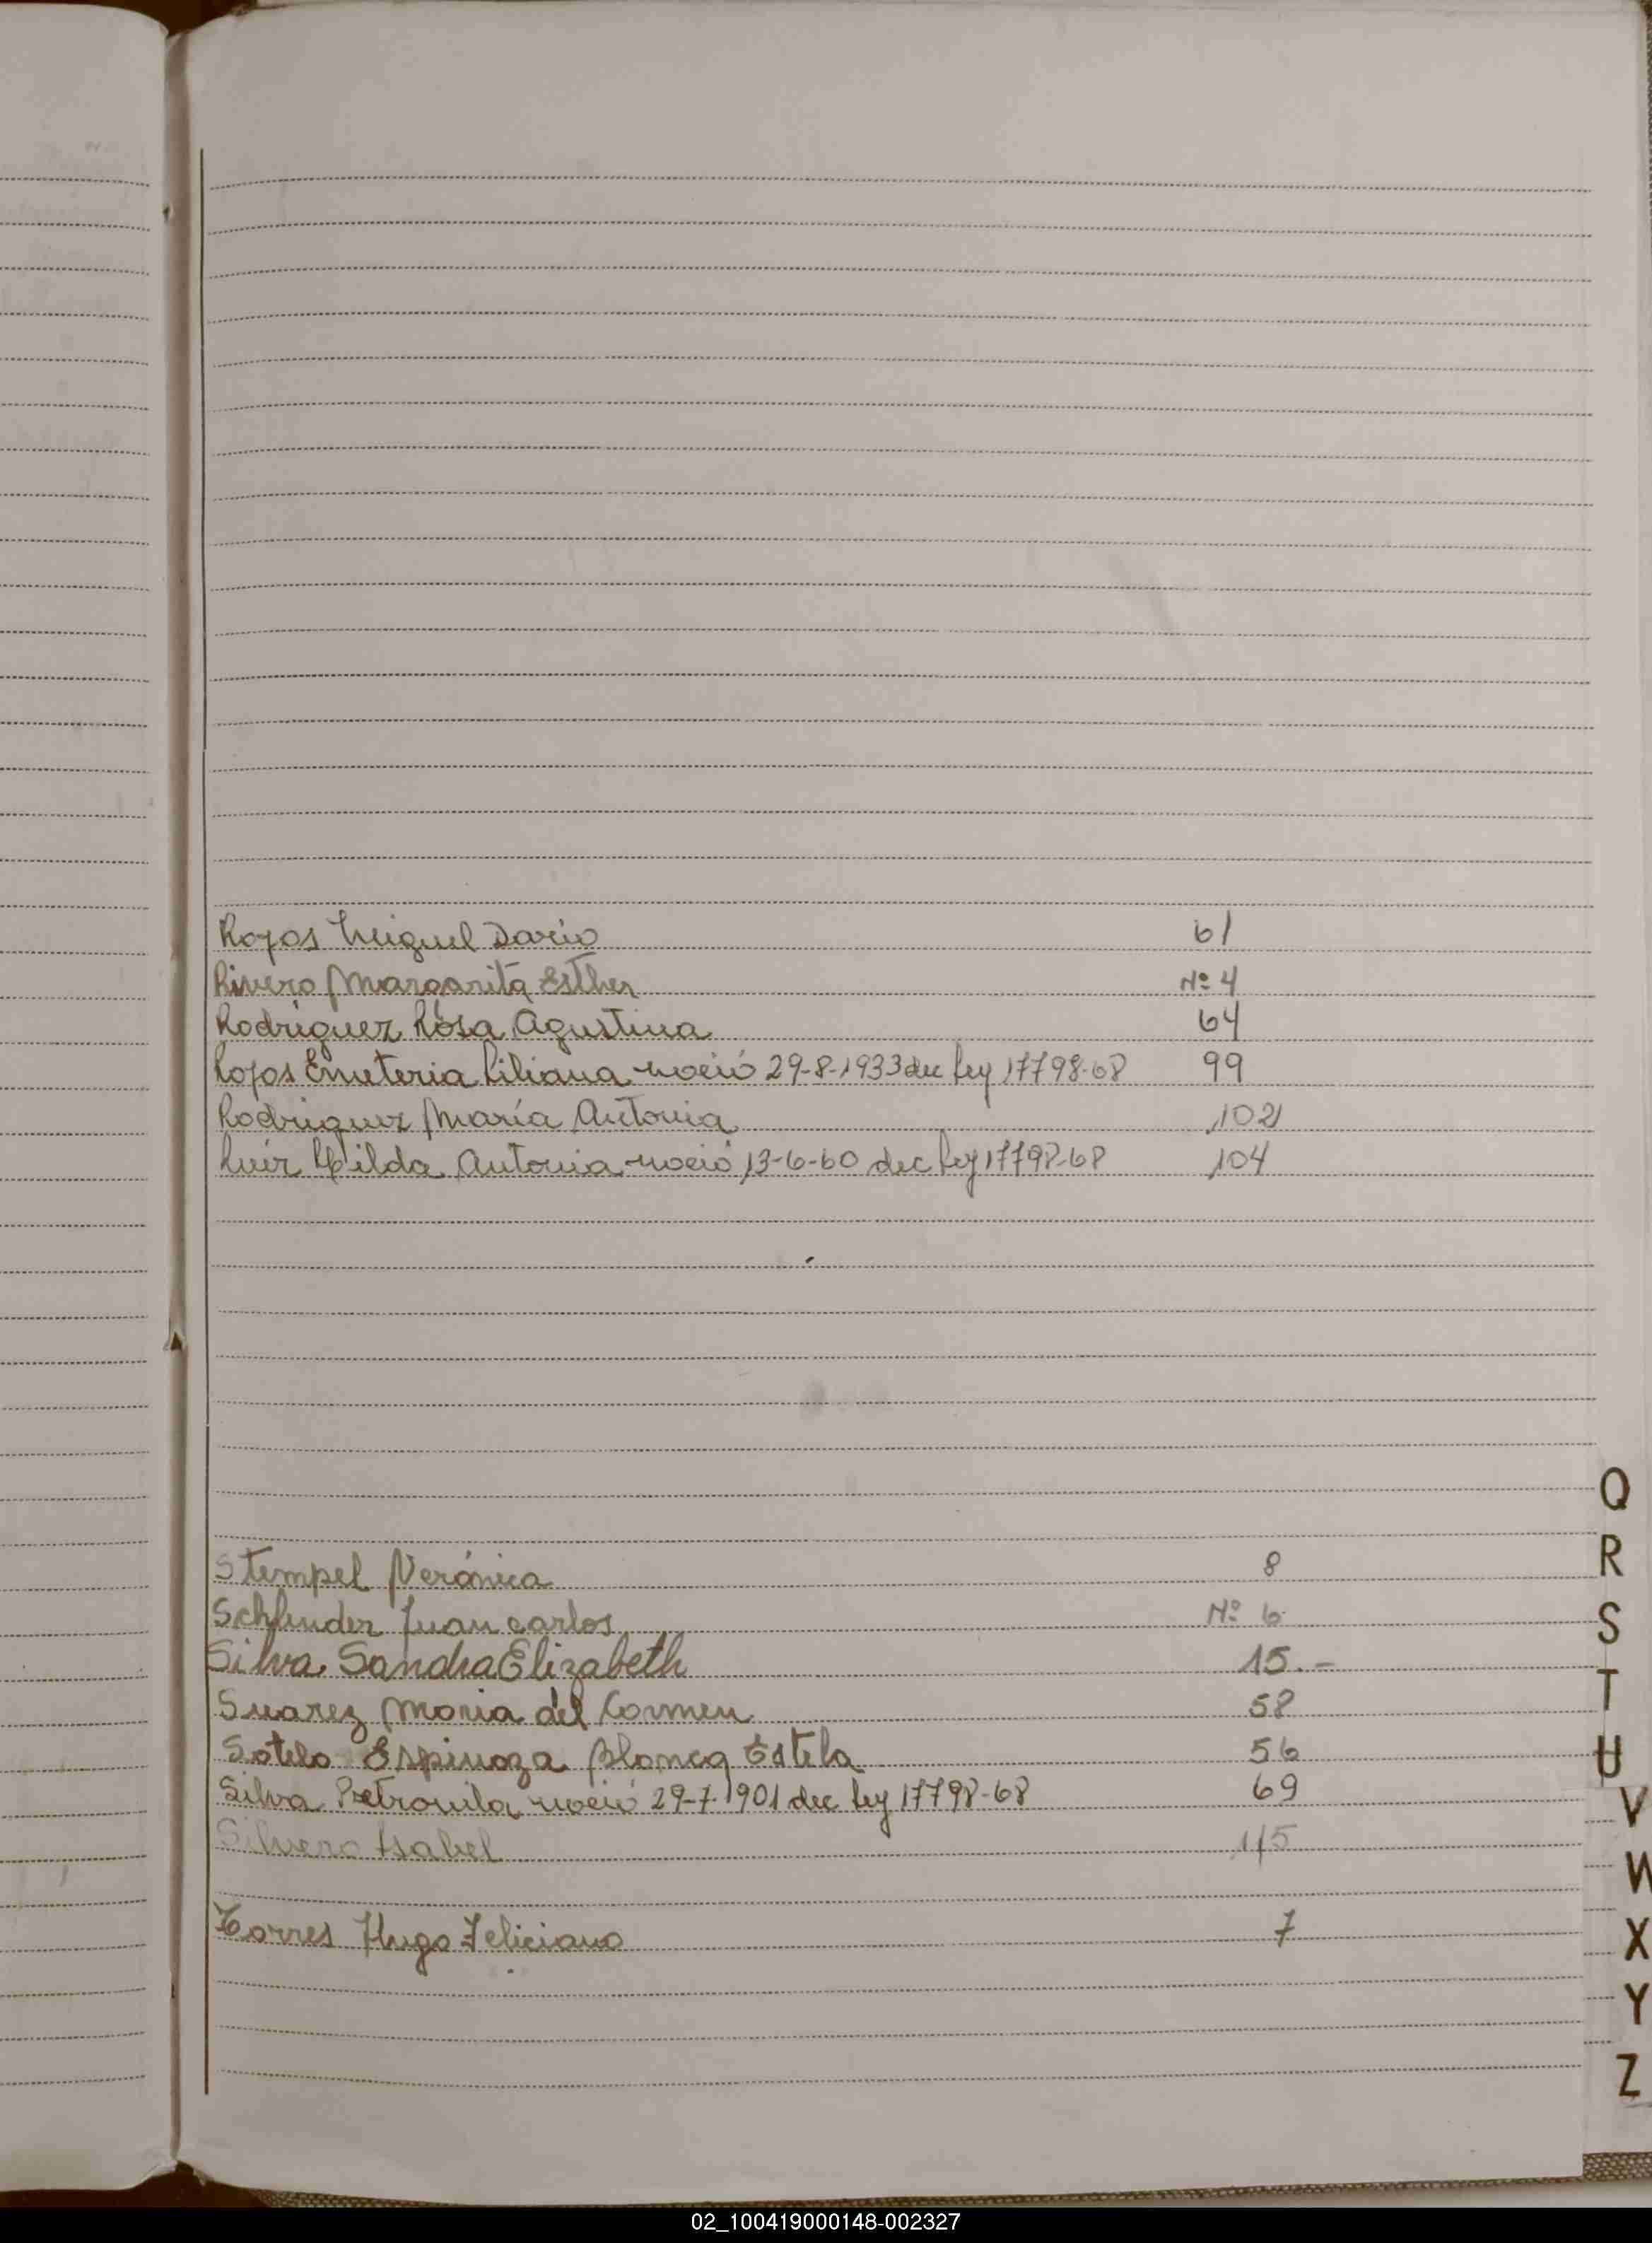 Rojas Miguel Dario 61
Rivero Margarita Esther Nº 4
Rodriguez Rosa Agustina 64
Rojas Emeteria Liliana nació 29-8-1933 dec ley 17798-68 99
Rodriguez María Antonia 102
Ruiz Hilda Antonia nació 13-6-60 dec ley 17798-68 104
Q
R
Stempel Verónica 8
Schlinder Juan carlos Nº 6
S
Silva Sandra Elizabeth 15.-
T
Suarez Maria del Carmen 58
Sotelo Espinoza Blanca Estela 56
U
Silva Petronila nació 29-7-1901 dec ley 17798-68 69
V
Silvero Isabel 115
W
Torres Hugo Feliciano 7
X
Y
Z
02_100419000148-002327